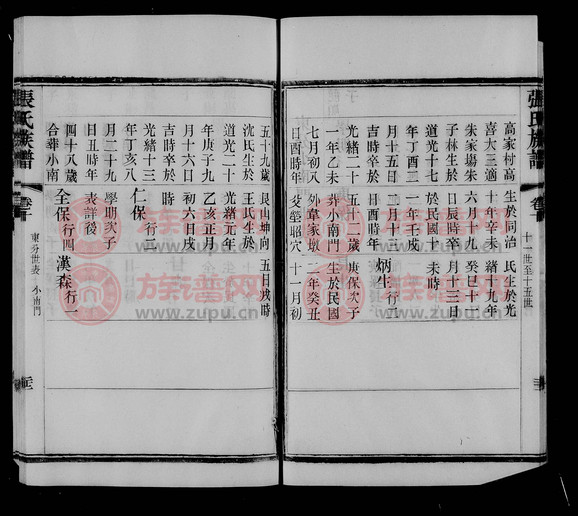 張氏族譜
十一世至十五世
高家村高
喜大三適
朱家塲朱
子林生於
道光十七
年丁酉二
月十五日
吉時卒於
光緒二十
一年乙未
七月初八
日酉時年
生於同治
十年辛未
六月十九
日辰時卒
於民國十
一年壬戌
二月十三
日酉時年
五十二歲
葬小南門
外草家墩
艾塋昭穴
氏生於光
緒十九年
癸巳十一
月十三日
未時
炳生 行二
庚保次子
生於民國
二年癸丑
十一月初
五十九歲
沈氏生於
道光二十
年庚子九
月十六日
吉時卒於
光緒十三
年丁亥八
月二十九
日丑時年
四十八歲
合葬小南
艮山坤向
王氏生於
光緒元年
乙亥正月
初六日戌
時
仁保 行三
學期次子
表詳後
全保 行四
五日戌時
漢森 行一
張氏族譜
東分世表 小南門
族谱网
www.zupu.cn
族谱网
www.zupu.cn
族谱网
www.zupu.cn
族谱网
www.zupu.cn